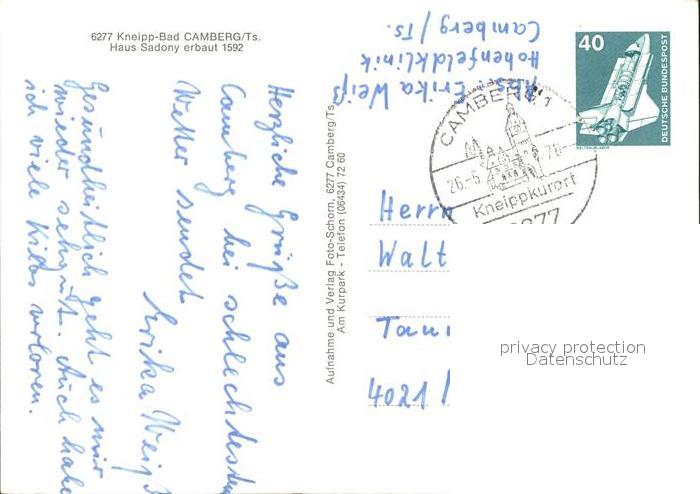 6277 Kneipp-Bad CAMBERG/Ts.
Haus Sadony erbaut 1592
Herzliche Grüße aus
Camberg bei schlechtestem
Wetter sendet
Erika Weiß
Gesundheitlich geht es mir
wieder sehr gut. Auch habe
ich viele Kilos verloren.
Aufnahme und Verlag Foto-Schorn, 6277 Camberg/Ts.
Am Kurpark - Telefon (06434) 72 60
Abs. Erika Weiß
Hohenfeldklinik
Camberg / Ts.
40
DEUTSCHE BUNDESPOST
WELTRAUMLABOR
CAMBERG, 1
26.-5. 76-
Kneippkurort
6277
Herrn
Walt
Tau
4021
privacy protection
Datenschutz